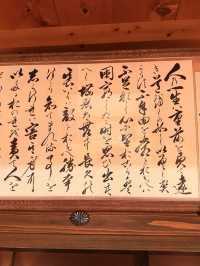 人の一生は重荷を負て遠
き道をゆくが如しいそぐ
べからず不自由を常とおもへば
不足なし心に望おこらば
困窮したる時を思ひ出す
べし堪忍は無事長久の
基いかりは敵とおもへ勝事
ばかり知てまくる事を
しらざれば害其身に
いたるおのれを責て人を